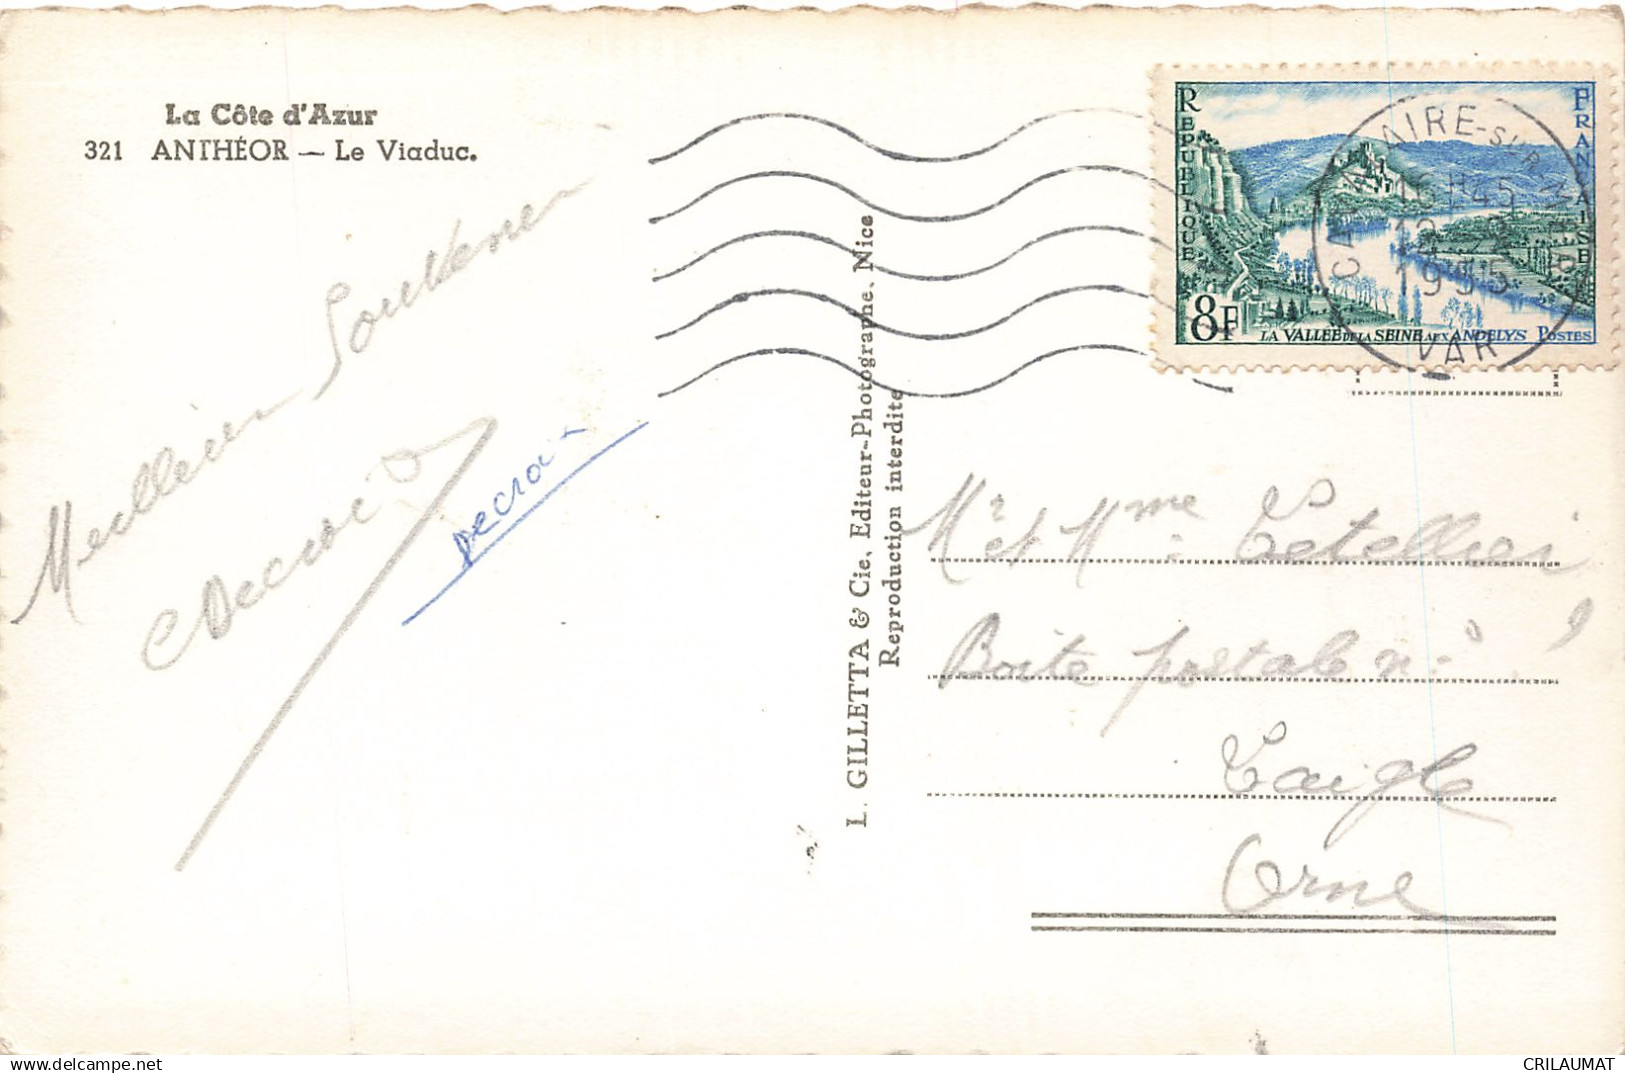 La Côte d'Azur
321 ANTHÉOR — Le Viaduc.
Meilleur Souvenir
Decroix
Decroix
L. GILLETTA & Cie, Editeur-Photographe, Nice
Reproduction interdite
REPUBLIQUE FRANÇAISE
8F
LA VALLÉE DE LA SEINE AUX ANDELYS POSTES
CAVALAIRE-SUR-MER
16H45
1955
VAR
Mr et Mme Letellier
Boîte postale n°
Laigle
Orne
delcampe.net
CRILAUMAT